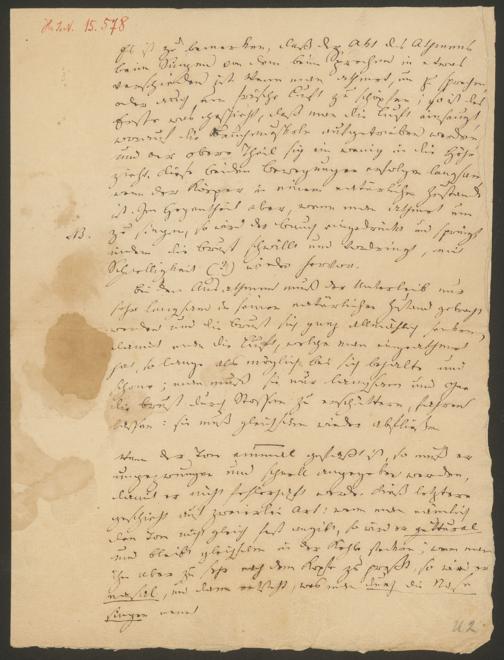 H.I.N. 15.578
Es ist zu bemerken, daß der Akt des Athmens
beim Singen von dem beim Sprechen in etwas
verschieden ist. Wenn man athmet, um zu sprechen
oder auch um frische Luft zu schöpfen; so ist das
Erste was geschieht, daß man die Luft einsaugt
worauf die Bauchmuskeln aufgetrieben werden
und der obere Theil sich ein wenig in die Höhe
zieht. Diese beiden Bewegungen erfolgen langsam
wenn der Körper in einem natürlichen Zustande
ist. Im Gegentheil aber, wenn man athmet um
NB. zu singen, so wird der Bauch eingedrückt und springt
indem die Brust schwillt und vordringt, mit
Schnelligkeit (?) wieder hervor.
Bei dem Ausathmen muß der Unterleib nur
sehr langsam in seinen natürlichen Zustand gebracht
werden und die Brust sich ganz allmählich senken,
damit man die Luft, welche man eingeathmet
hat, so lange als möglich bei sich behalte und
schone; man muß sie nur langsam und ohne
die Brust durch Stoßen zu erschüttern, fahren
lassen: sie muß gleichsam wieder abfließen
Wenn der Ton einmal gefaßt ist, so muß er
ungezwungen und schnell angegeben werden,
damit er nicht
geschieht auf zweierlei Art: wenn man nämlich
den Ton nicht gleich fest angibt, so wird er guttural
und bleibt gleichsam in der Kehle stecken; wenn man
ihn aber zu sehr nach dem Kopfe zu preßt, so wird er
nasal, und dann entsteht, was man durch die Nase
singen nennt
42